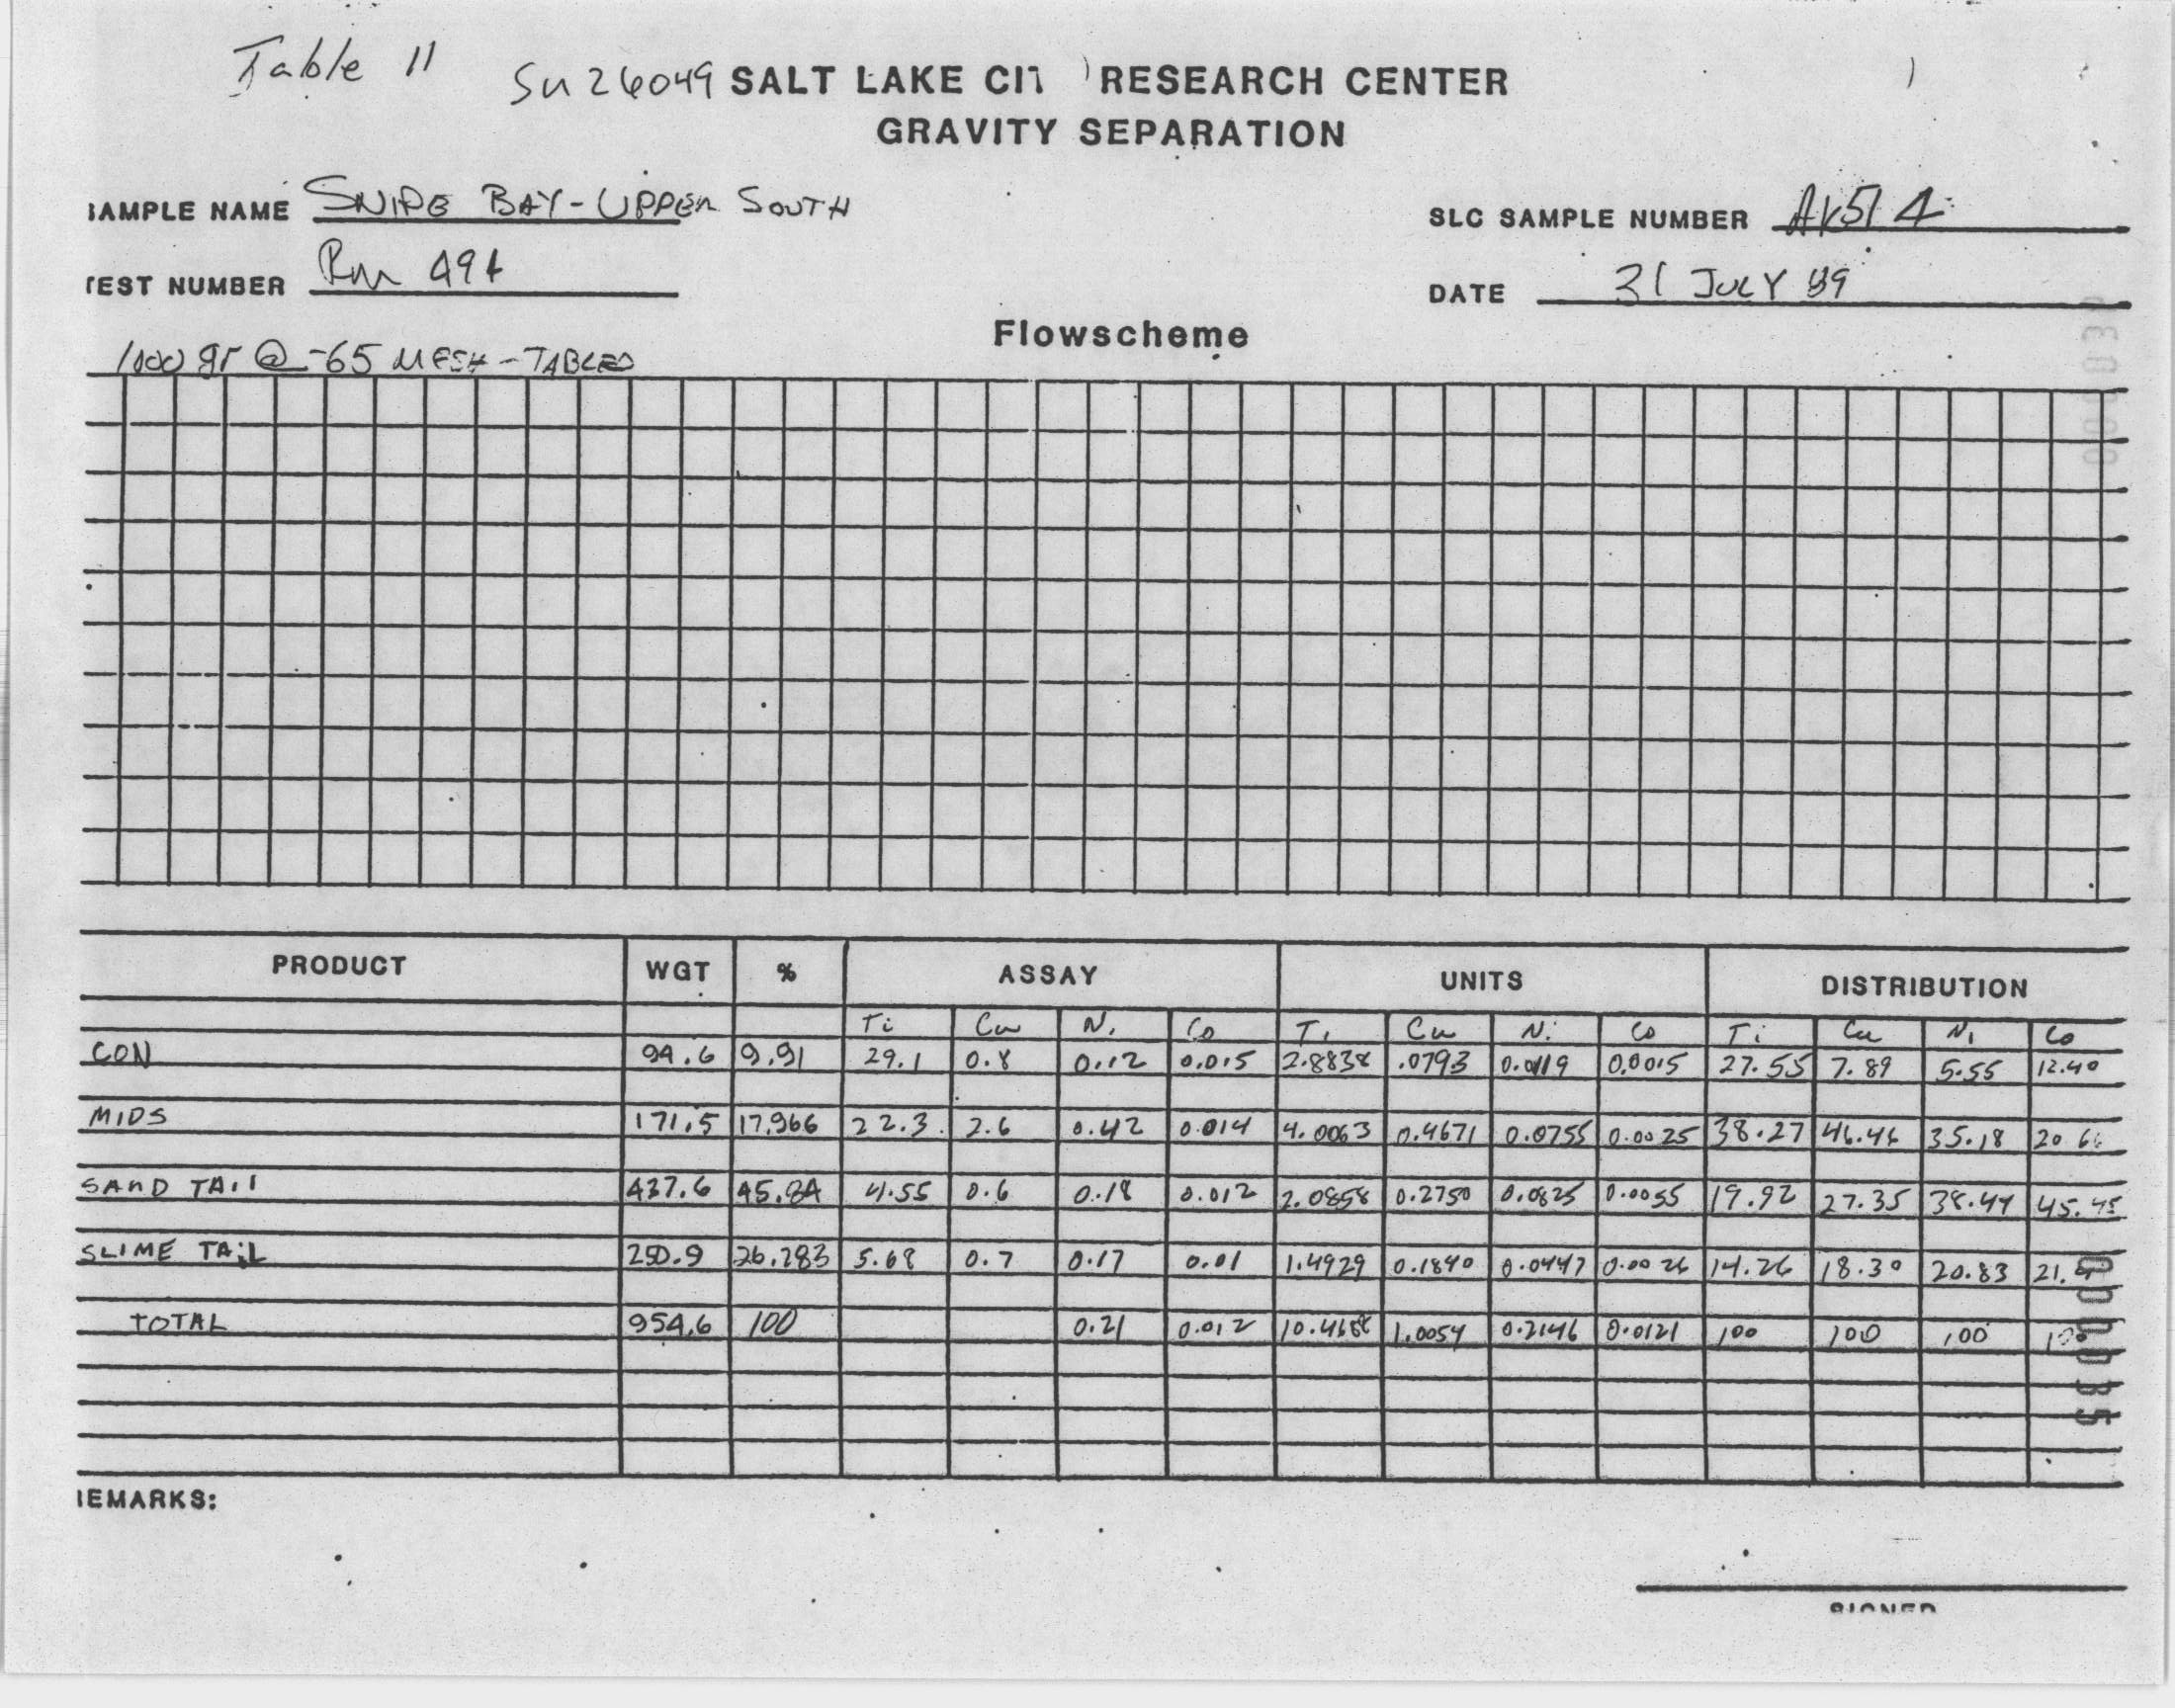 Table 11
Su26049 SALT LAKE CIT RESEARCH CENTER
GRAVITY SEPARATION
AMPLE NAME SNIPE BAY - UPPER SOUTH
SLC SAMPLE NUMBER AK514
EST NUMBER
DATE 31 JULY 89
Flowscheme
gr @ -65 MESH - TABLED
PRODUCT WGT % ASSAY UNITS DISTRIBUTION
Ti Cu Ni Co Ti Cu Ni Co Ti Cu Ni Co
CON 94.6 9.91 29.1 0.8 0.12 0.015 2.8838 .0793 0.0119 0.0015 27.55 7.89 5.55 12.40
MIDS 171.5 17.966 22.3 2.6 0.42 0.014 4.0063 0.4671 0.0755 0.0025 38.27 46.46 35.18
SAND TAIL 437.6 45.84 4.55 0.6 0.18 0.012 2.0858 0.2750 0.0825 0.0055 19.92 27.35 38.44 45.45
SLIME TAIL 250.9 26.283 5.68 0.7 0.17 0.01 1.4929 0.1840 0.0447 0.0026 14.26 18.30 20.83
TOTAL 954.6 100 0.21 0.012 10.4688 1.0054 0.2146 0.0121 100 100 100
EMARKS: